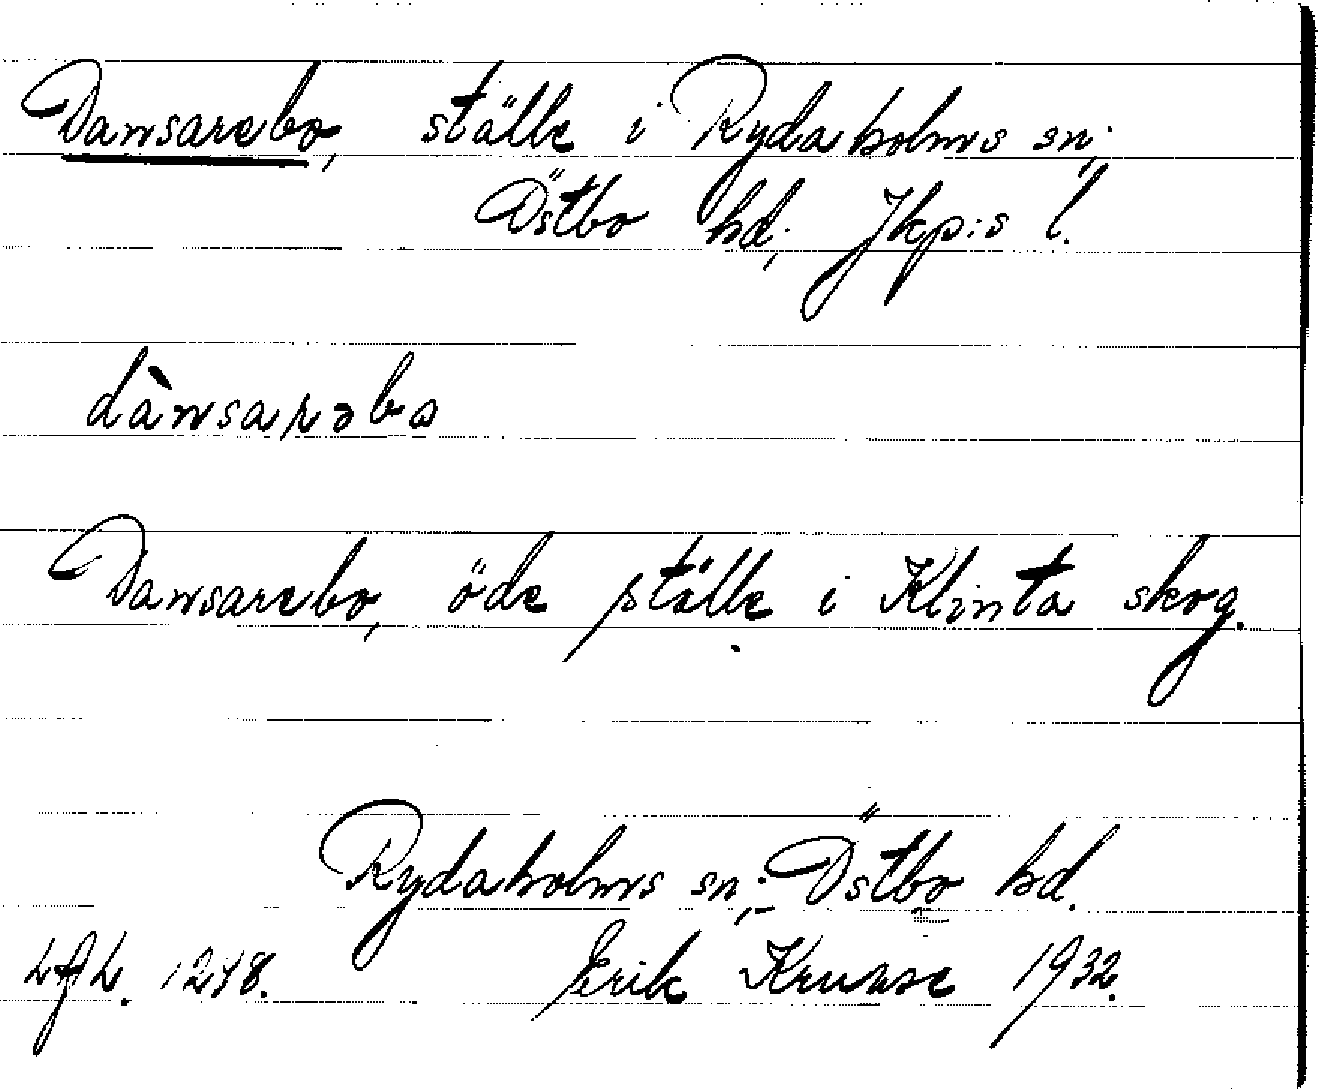 Dansarebo, ställe i Rydaholms sn;
Östbo hd; Jkp:s l.
dànsarəbo
Dansarebo, öde ställe i Klinta skog.
Rydaholms sn; Östbo hd.
1248. Erik Kruuse 1932.